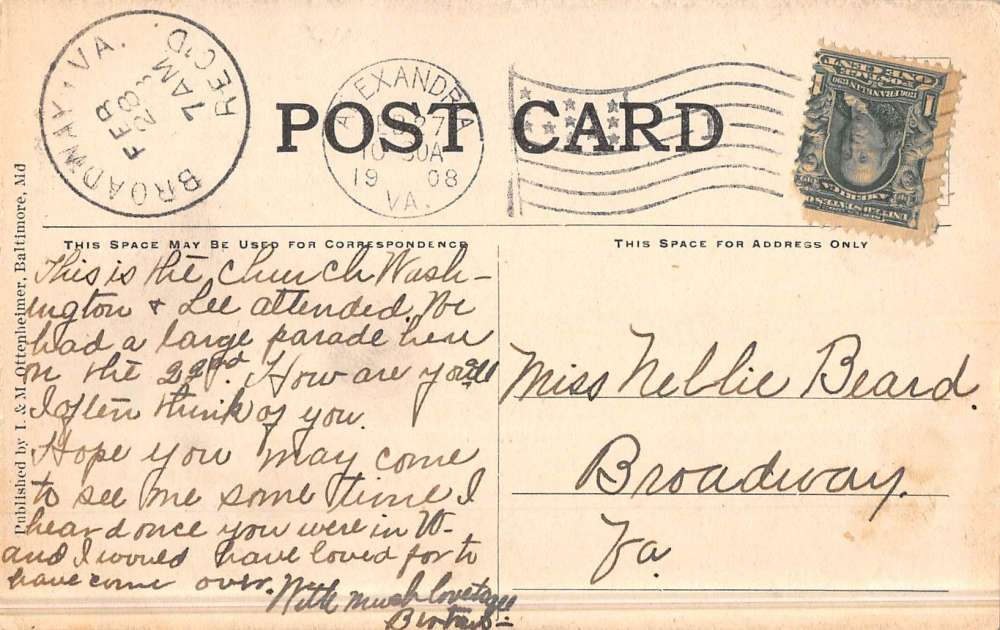 BROADWAY, VA.
FEB
28
7 AM
REC'D.
ALEXANDRIA
VA.
19 08
POST CARD
1 1
POSTAGE
ONE CENT
UNITED STATES OF
AMERICA
THIS SPACE MAY BE USED FOR CORRESPONDENCE
THIS SPACE FOR ADDRESS ONLY
Published by I. & M. Ottenheimer, Baltimore, Md
This is the church Wash-
ington & Lee attended. We
had a large parade here
on the 22nd. How are you all
I often think of you.
Hope you may come
to see me some time I
heard once you were in W-
and I would have loved for to
have come over.
With much love to all
Miss Nellie Beard.
Broadway.
Va.